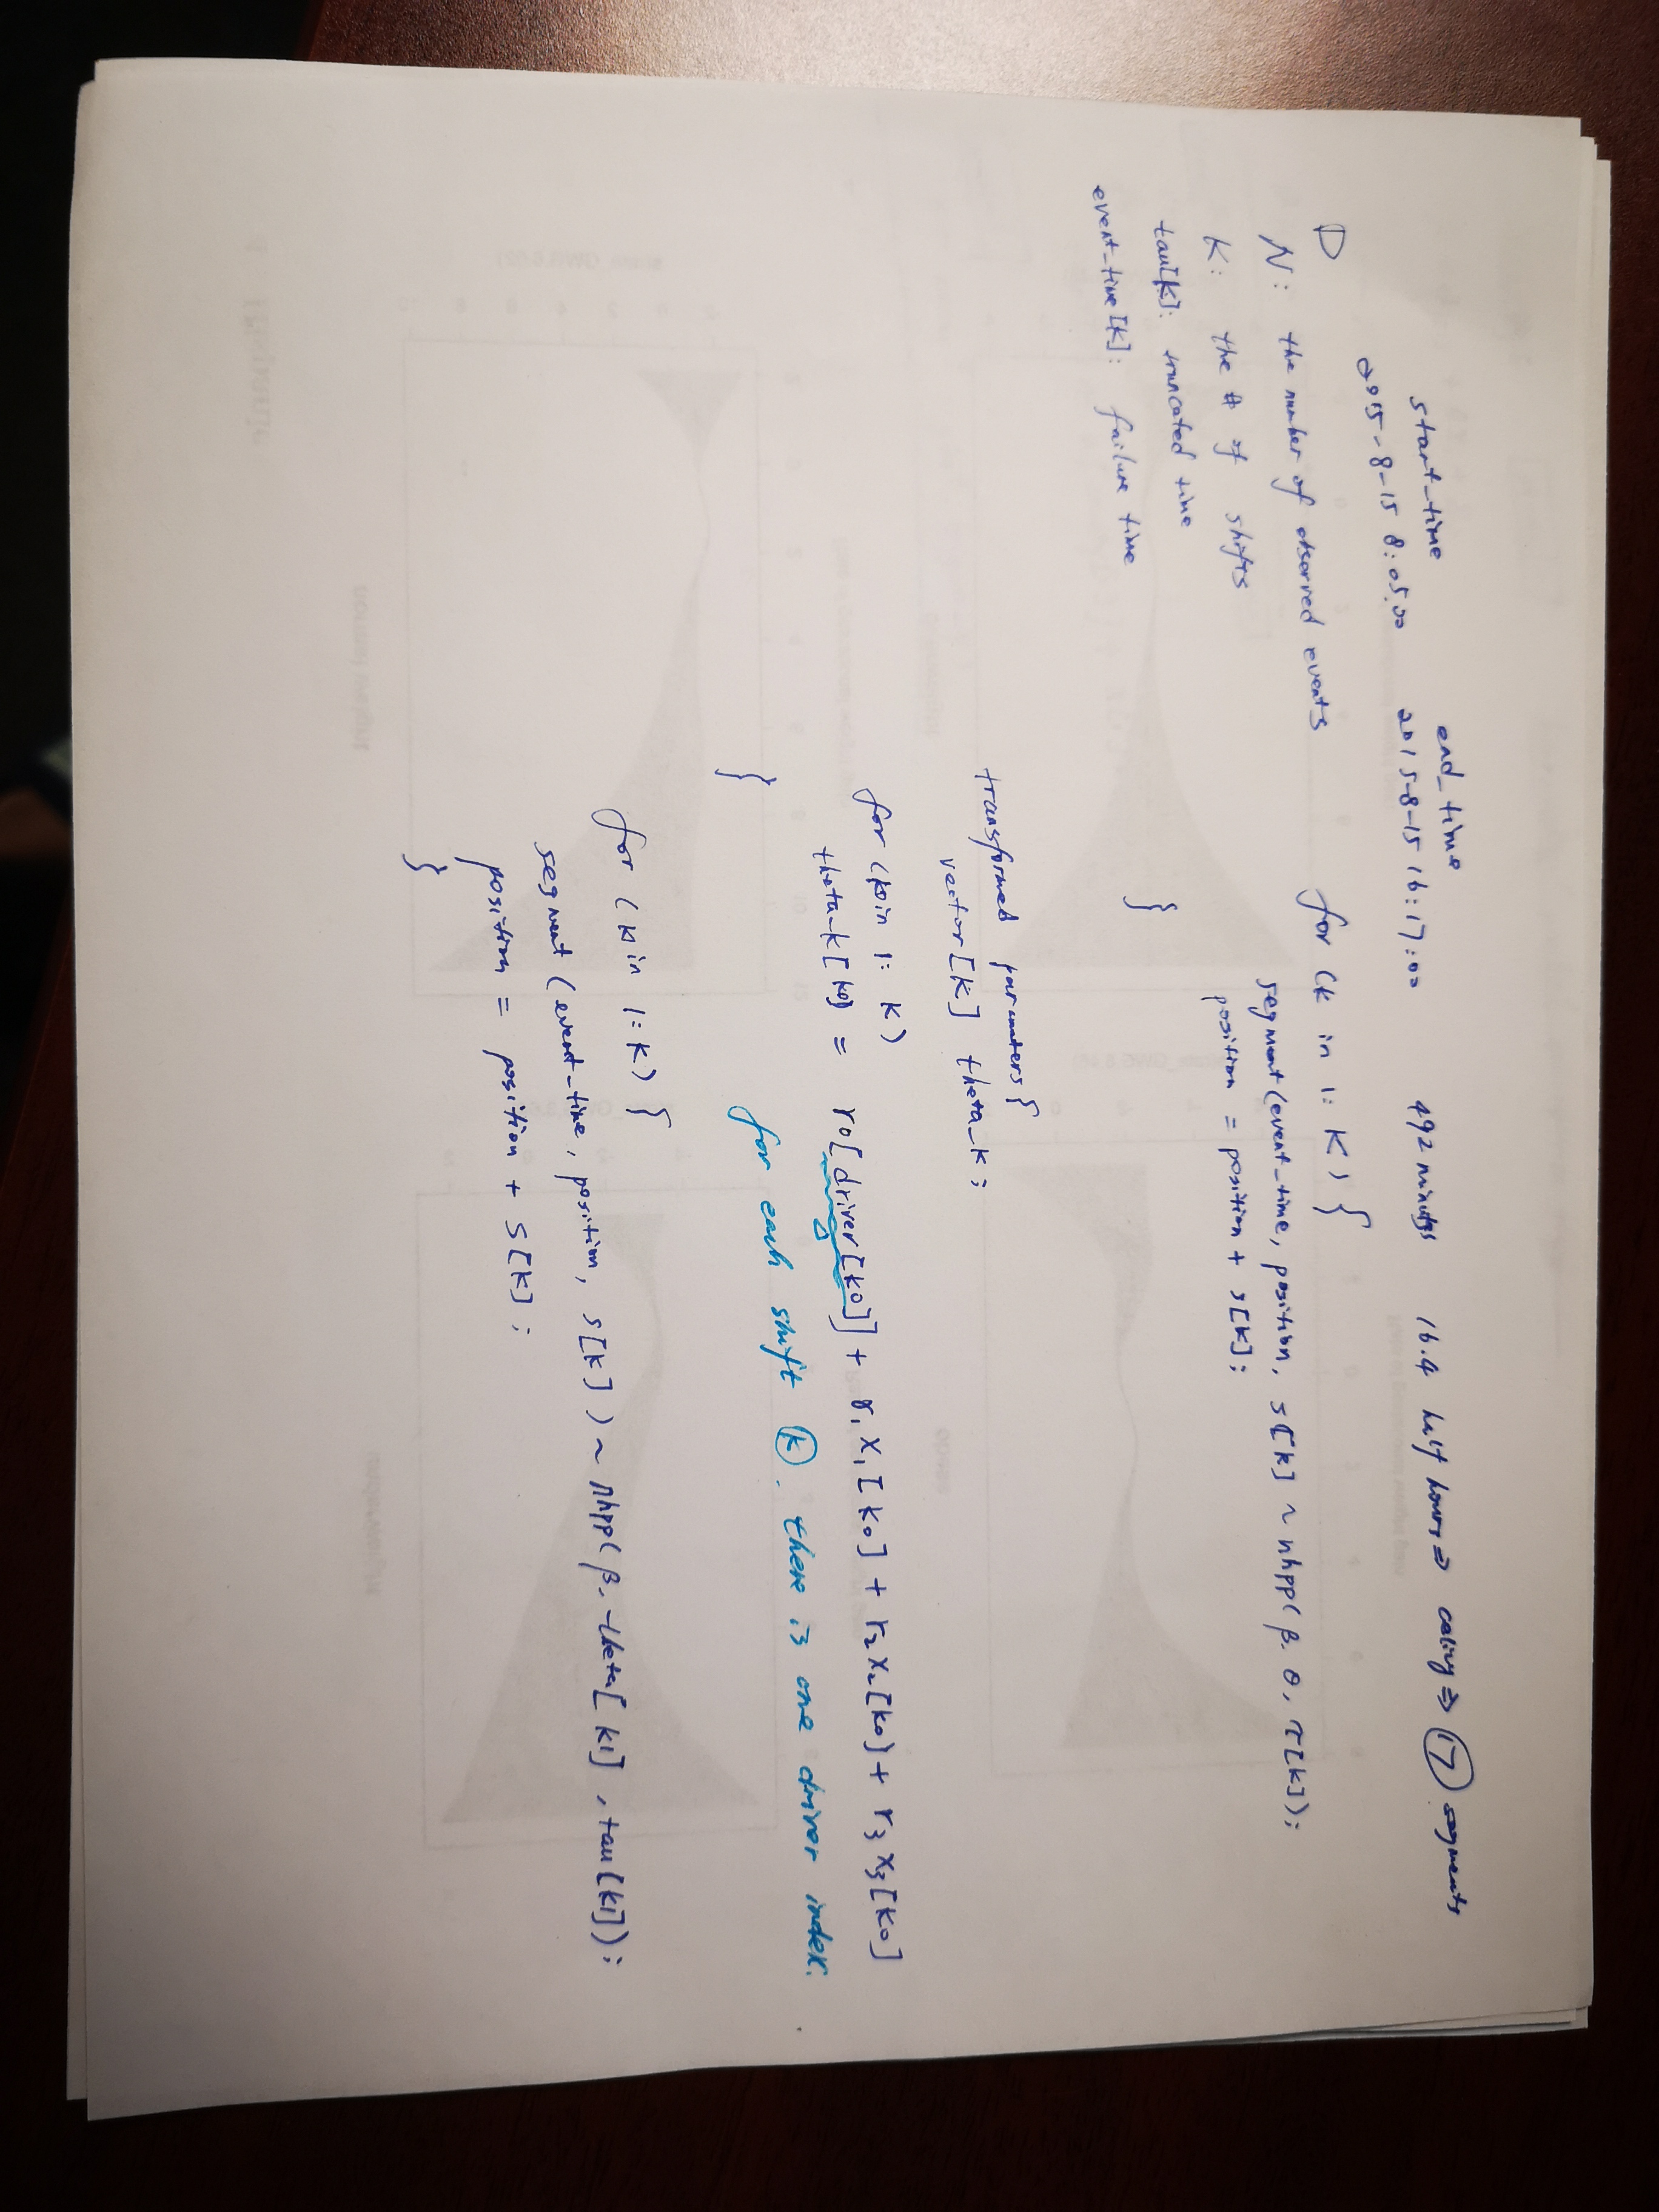 start_time end_time
2015-8-15 8:05:00 2015-8-15 16:17:00 492 minutes 16.4 half hours ⇒ ceiling ⇒ 17 segments
D
N: the number of observed events
K: the # of shifts
tau[K]: truncated time
event_time[K]: failure time
for (k in 1: K) {
segment(event_time, position, s[k] ~ nhpp(β, θ, τ[k]);
position = position + s[k];
}
transformed parameters {
vector[K] theta_k;
for (k0 in 1: K)
theta_k[k0] = r0[driver[k0]] + r1 x1[k0] + r2 x2[k0) + r3 x3[k0]
}
for each shift k. there is one driver index.
for (k in 1: K) {
segment (event_time, position, s[k]) ~ nhpp(β, theta[k1], tau[k1]);
position = position + s[k];
}